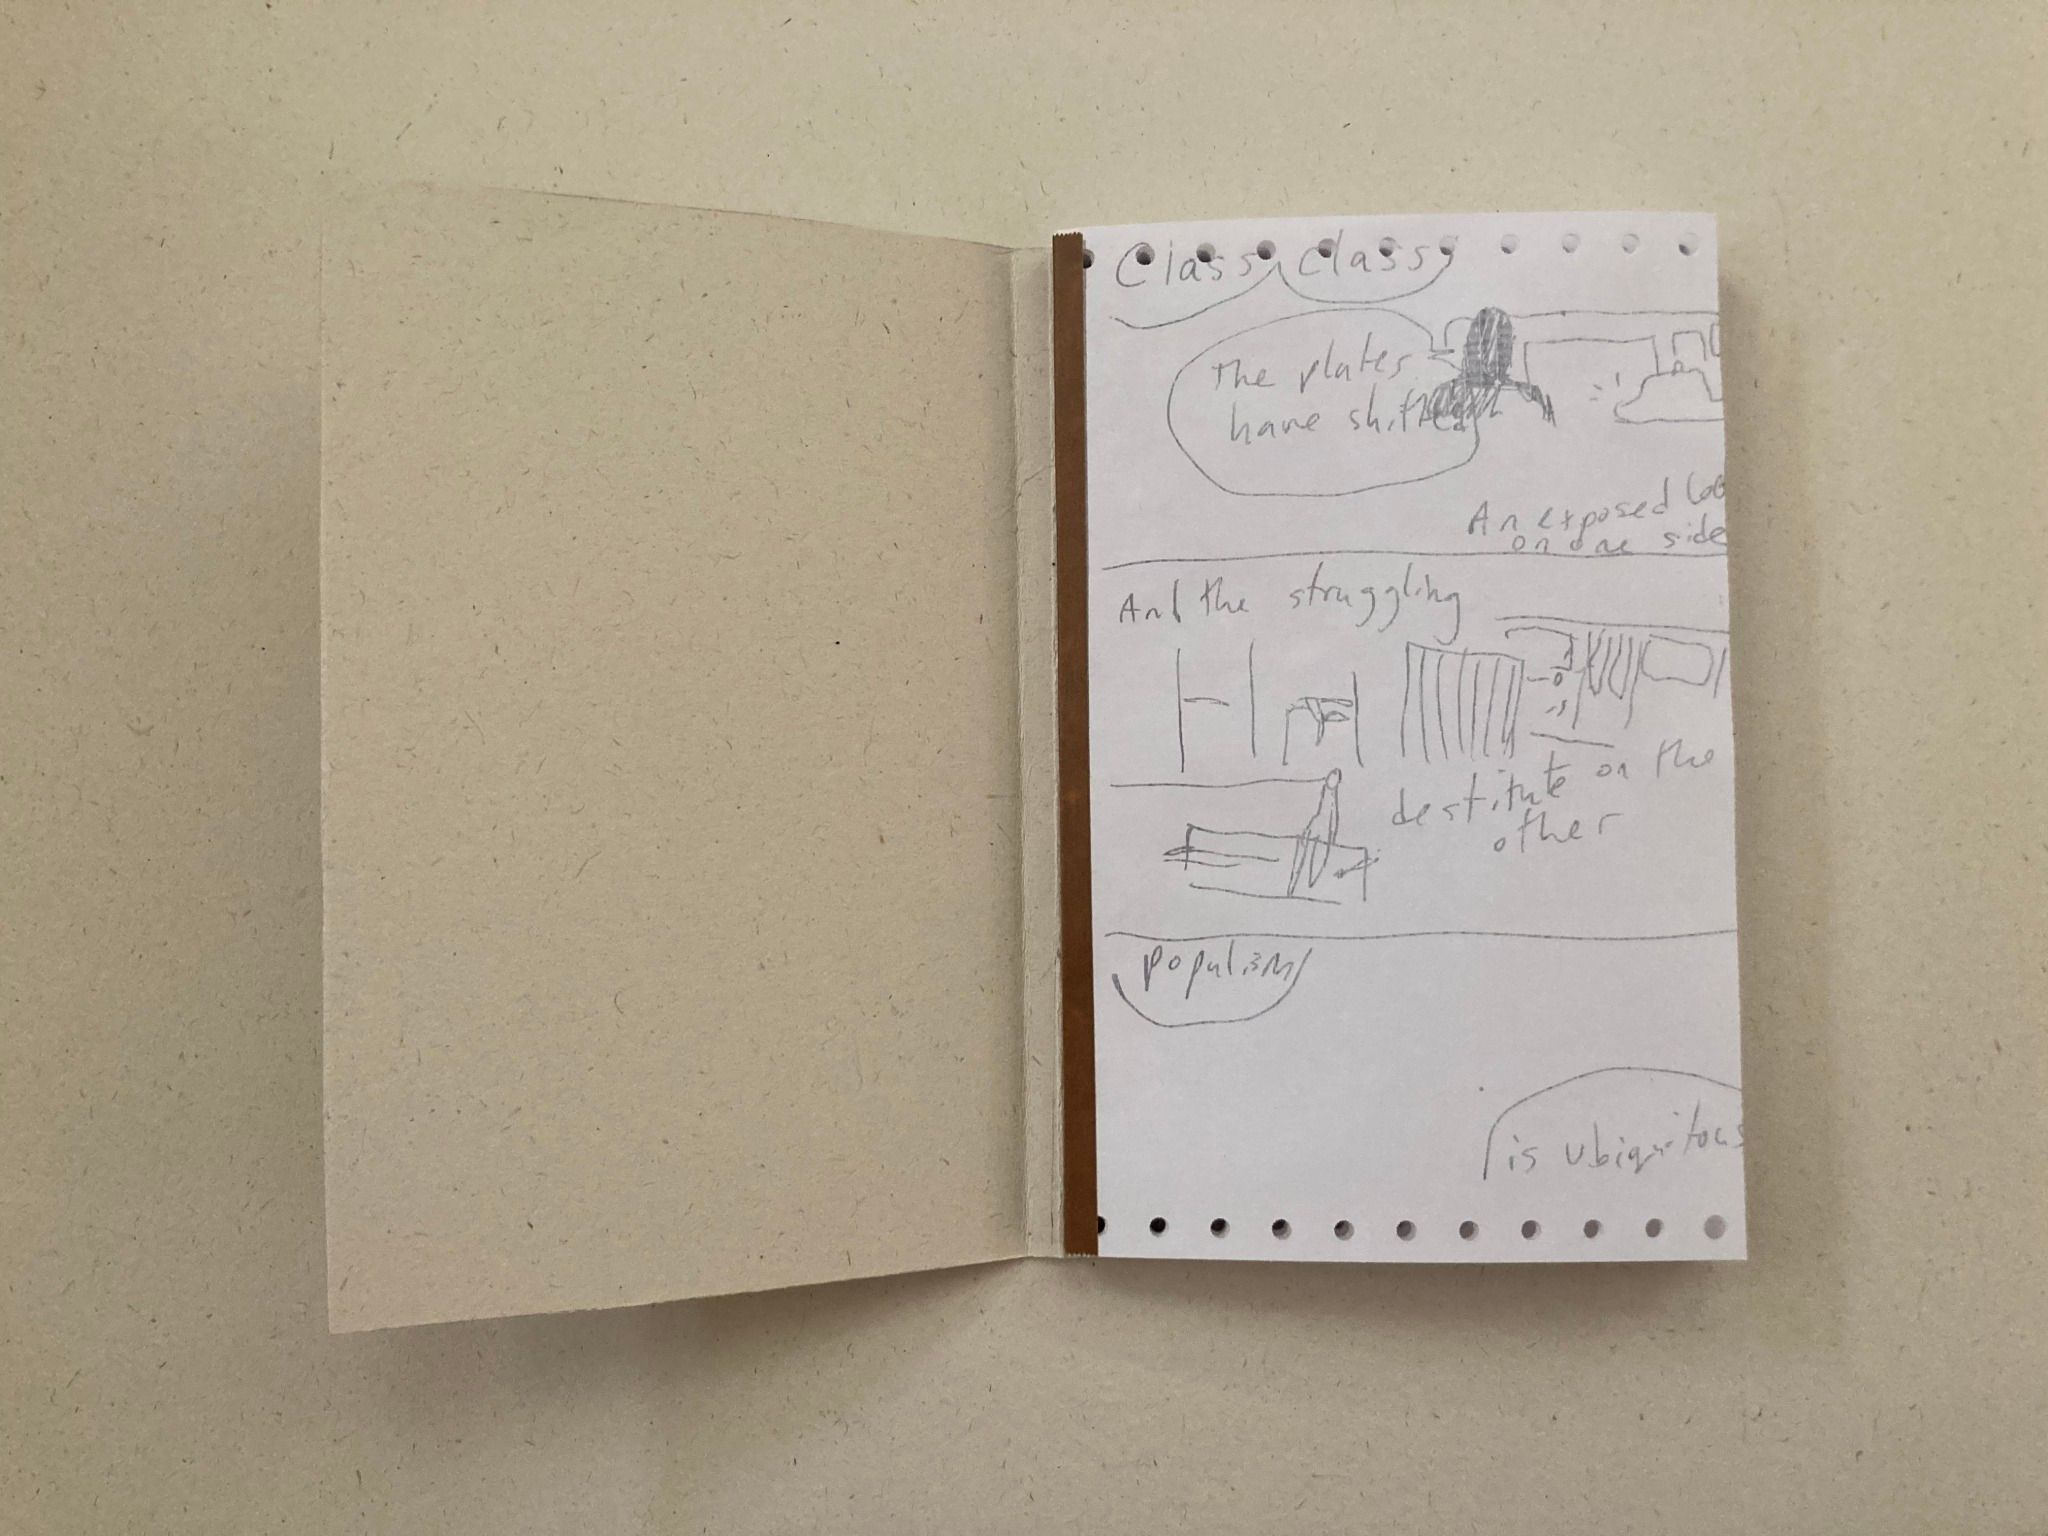 Class, classy
The plates
have shifted
An exposed
on one side
And the struggling
destitute on the
other
populism
is ubiquitous